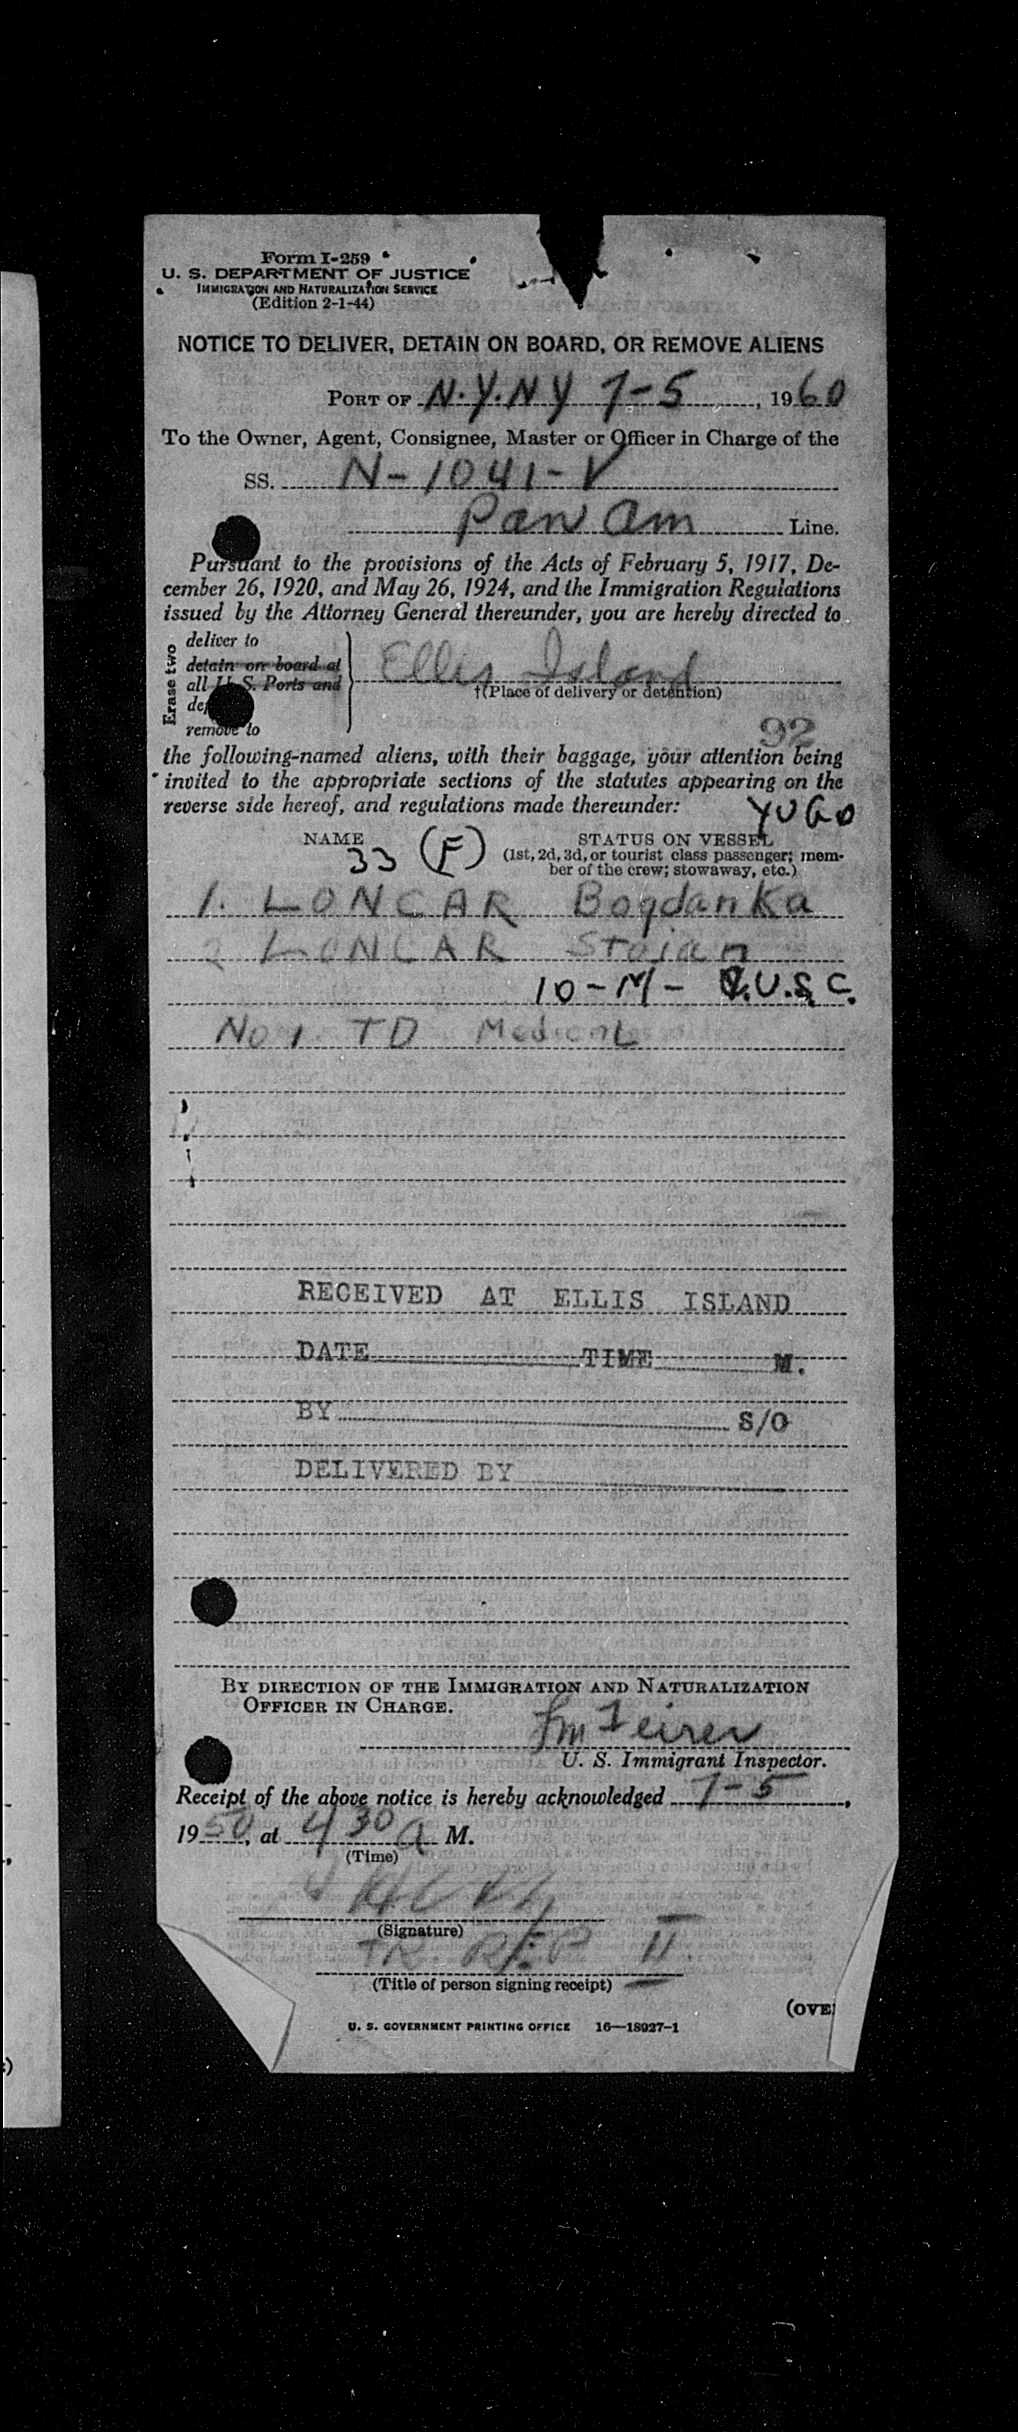 Form I-259
U. S. DEPARTMENT OF JUSTICE
IMMIGRATION AND NATURALIZATION SERVICE
(Edition 2-1-44)
NOTICE TO DELIVER, DETAIN ON BOARD, OR REMOVE ALIENS
PORT OF N.Y. NY 7-5, 1960
To the Owner, Agent, Consignee, Master or Officer in Charge of the
SS. N-1041-V
Pan Am Line.
Pursuant to the provisions of the Acts of February 5, 1917, De-
cember 26, 1920, and May 26, 1924, and the Immigration Regulations
issued by the Attorney General thereunder, you are hereby directed to
Erase two
deliver to
detain on board at
all U. S. Ports and
remove to
Ellis Island
†(Place of delivery or detention)
92
the following-named aliens, with their baggage, your attention being
invited to the appropriate sections of the statutes appearing on the
reverse side hereof, and regulations made thereunder:
YUGO
NAME
33 (F)
STATUS ON VESSEL
(1st, 2d, 3d, or tourist class passenger; mem-
ber of the crew; stowaway, etc.)
1. LONCAR Bogdanka
2 LONCAR Stojan
10-M- U.S.C.
No 1. TD Medical
RECEIVED AT ELLIS ISLAND
DATE TIME M.
BY S/O
DELIVERED BY
BY DIRECTION OF THE IMMIGRATION AND NATURALIZATION
OFFICER IN CHARGE.
U. S. Immigrant Inspector.
Receipt of the above notice is hereby acknowledged 7-5,
1950, at 4 30 a M.
(Time)
(Signature)
TR. REP II.
(Title of person signing receipt)
U. S. GOVERNMENT PRINTING OFFICE 16—18927-1